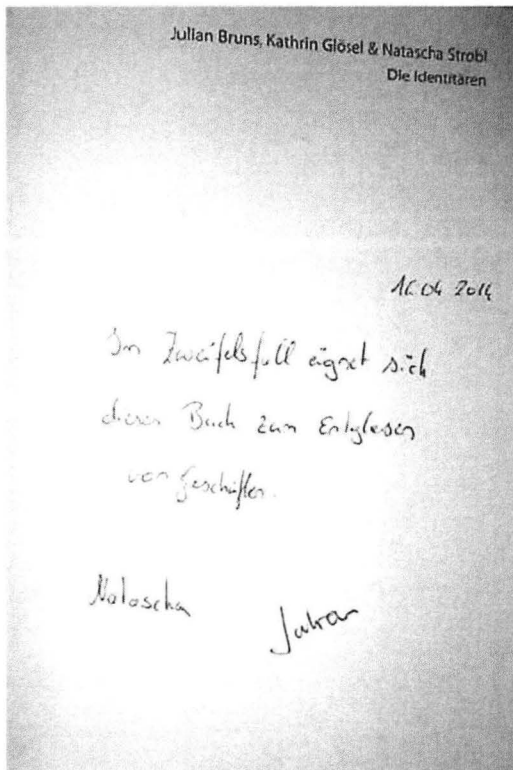 Julian Bruns, Kathrin Glösel & Natascha Strobl
Die Identitären
16.04 2014
Im Zweifelsfall eignet sich
dieses Buch zum Entglasen
von Geschäften.
Natascha
Julian